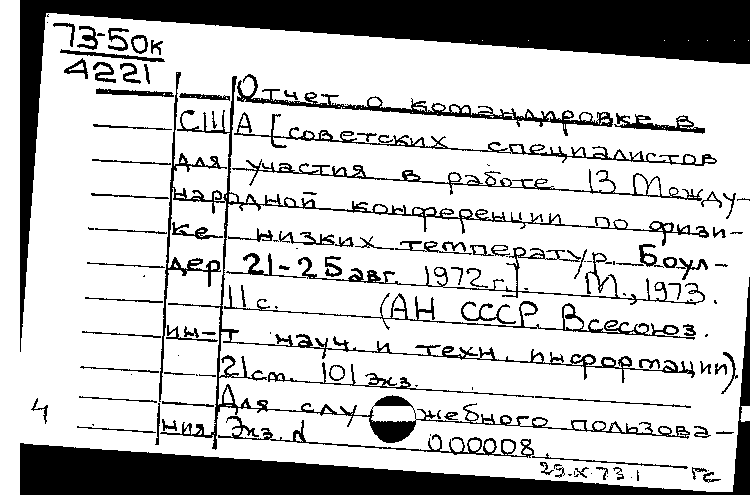 73-50к
4221
Отчет о командировке в
США [советских специалистов
для участия в работе 13 Между-
народной конференции по физи-
ке низких температур. Боул-
дер 21-25 авг. 1972 г.]. М., 1973.
11 с. (АН СССР. Всесоюз.
ин-т науч. и техн. информации).
21 см. 101 экз.
Для служебного пользова-
ния. Экз. N 000008.
4
29.X.73.1 ГС